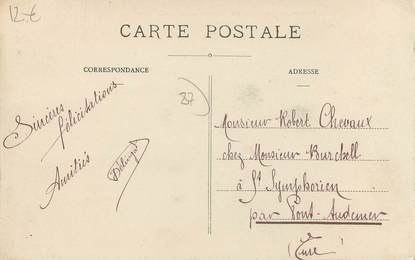 12 €
CARTE POSTALE
CORRESPONDANCE
ADRESSE
37
Sincères félicitations
Amitiés
Monsieur Robert Chevaux
chez Monsieur Burckell
à St Symphorien
par Pont-Audemer
(Eure)